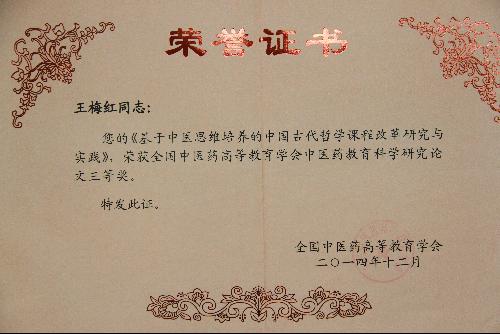 荣誉证书
王梅红同志：
您的《基于中医思维培养的中国古代哲学课程改革研究与
实践》，荣获全国中医药高等教育学会中医药教育科学研究论
文三等奖。
特发此证。
全国中医药高等教育学会
二〇一四年十二月